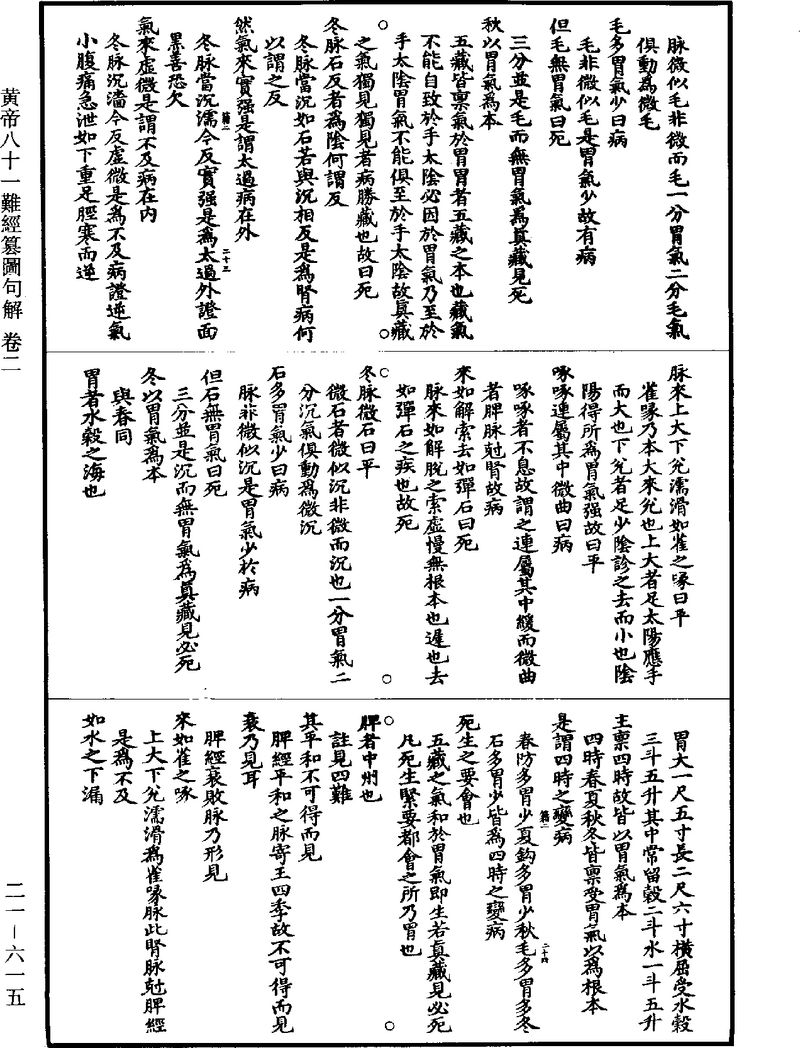 脉微似毛非微而毛一分胃氣二分毛氣
俱動為微毛
毛多胃氣少曰病
毛非微似毛是胃氣少故有病
但毛無胃氣曰死
三分並是毛而無胃氣為真藏見死
秋以胃氣為本
五藏皆禀氣於胃胃者五藏之本也藏氣
不能自致於手太陰必因於胃氣乃至於
手太陰胃氣不能俱至於手太陰故真藏
之氣獨見獨見者病勝藏也故曰死
冬脉石反者為陰何謂反
冬脉當沉如石若與沉相反是為腎病何
以謂之反
然氣來實强是謂太過病在外
冬脉當沉濡今反實强是為太過外證面
黑善恐欠
氣來虚微是謂不及病在内
冬脉沉濇今反虚微是為不及病證逆氣
小腹痛急泄如下重足脛寒而逆
脉來上大下兊濡滑如雀之喙曰平
雀喙乃本大來兊也上大者足太陽應手
而大也下兊者足少陰診之去而小也陰
陽得所為胃氣强故曰平
啄啄連屬其中微曲曰病
啄啄者不息故謂之連屬其中緩而微曲
者脾脉尅腎故病
來如解索去如彈石曰死
脉來如解脫之索虚慢無根本也遲也去
如彈石之疾也故死
冬脉微石曰平
微石者微似沉非微而沉也一分胃氣二
分沉氣俱動為微沉
石多胃氣少曰病
脉非微似沉是胃氣少於病
但石無胃氣曰死
三分並是沉而無胃氣為真藏見必死
冬以胃氣為本
與春同
胃者水穀之海也
胃大一尺五寸長二尺六寸橫屈受水穀
三斗五升其中常留穀二斗水一斗五升
主禀四時故皆以胃氣為本
四時春夏秋冬皆禀受胃氣以為根本
是謂四時之變病
春防多胃少夏鈎多胃少秋毛多胃多冬
石多胃少皆為四時之變病
死生之要會也
五藏之氣和於胃氣即生若真藏見必死
凡死生緊要都會之所乃胃也
脾者中州也
註見四難
其平和不可得而見
脾經平和之脉寄王四季故不可得而見
衰乃見耳
脾經衰敗脉乃形見
來如雀之啄
上大下兊濡滑為雀喙脉此腎脉尅脾經
是為不及
如水之下漏
黄帝八十一難經纂圖句解 卷二
二一－六一五